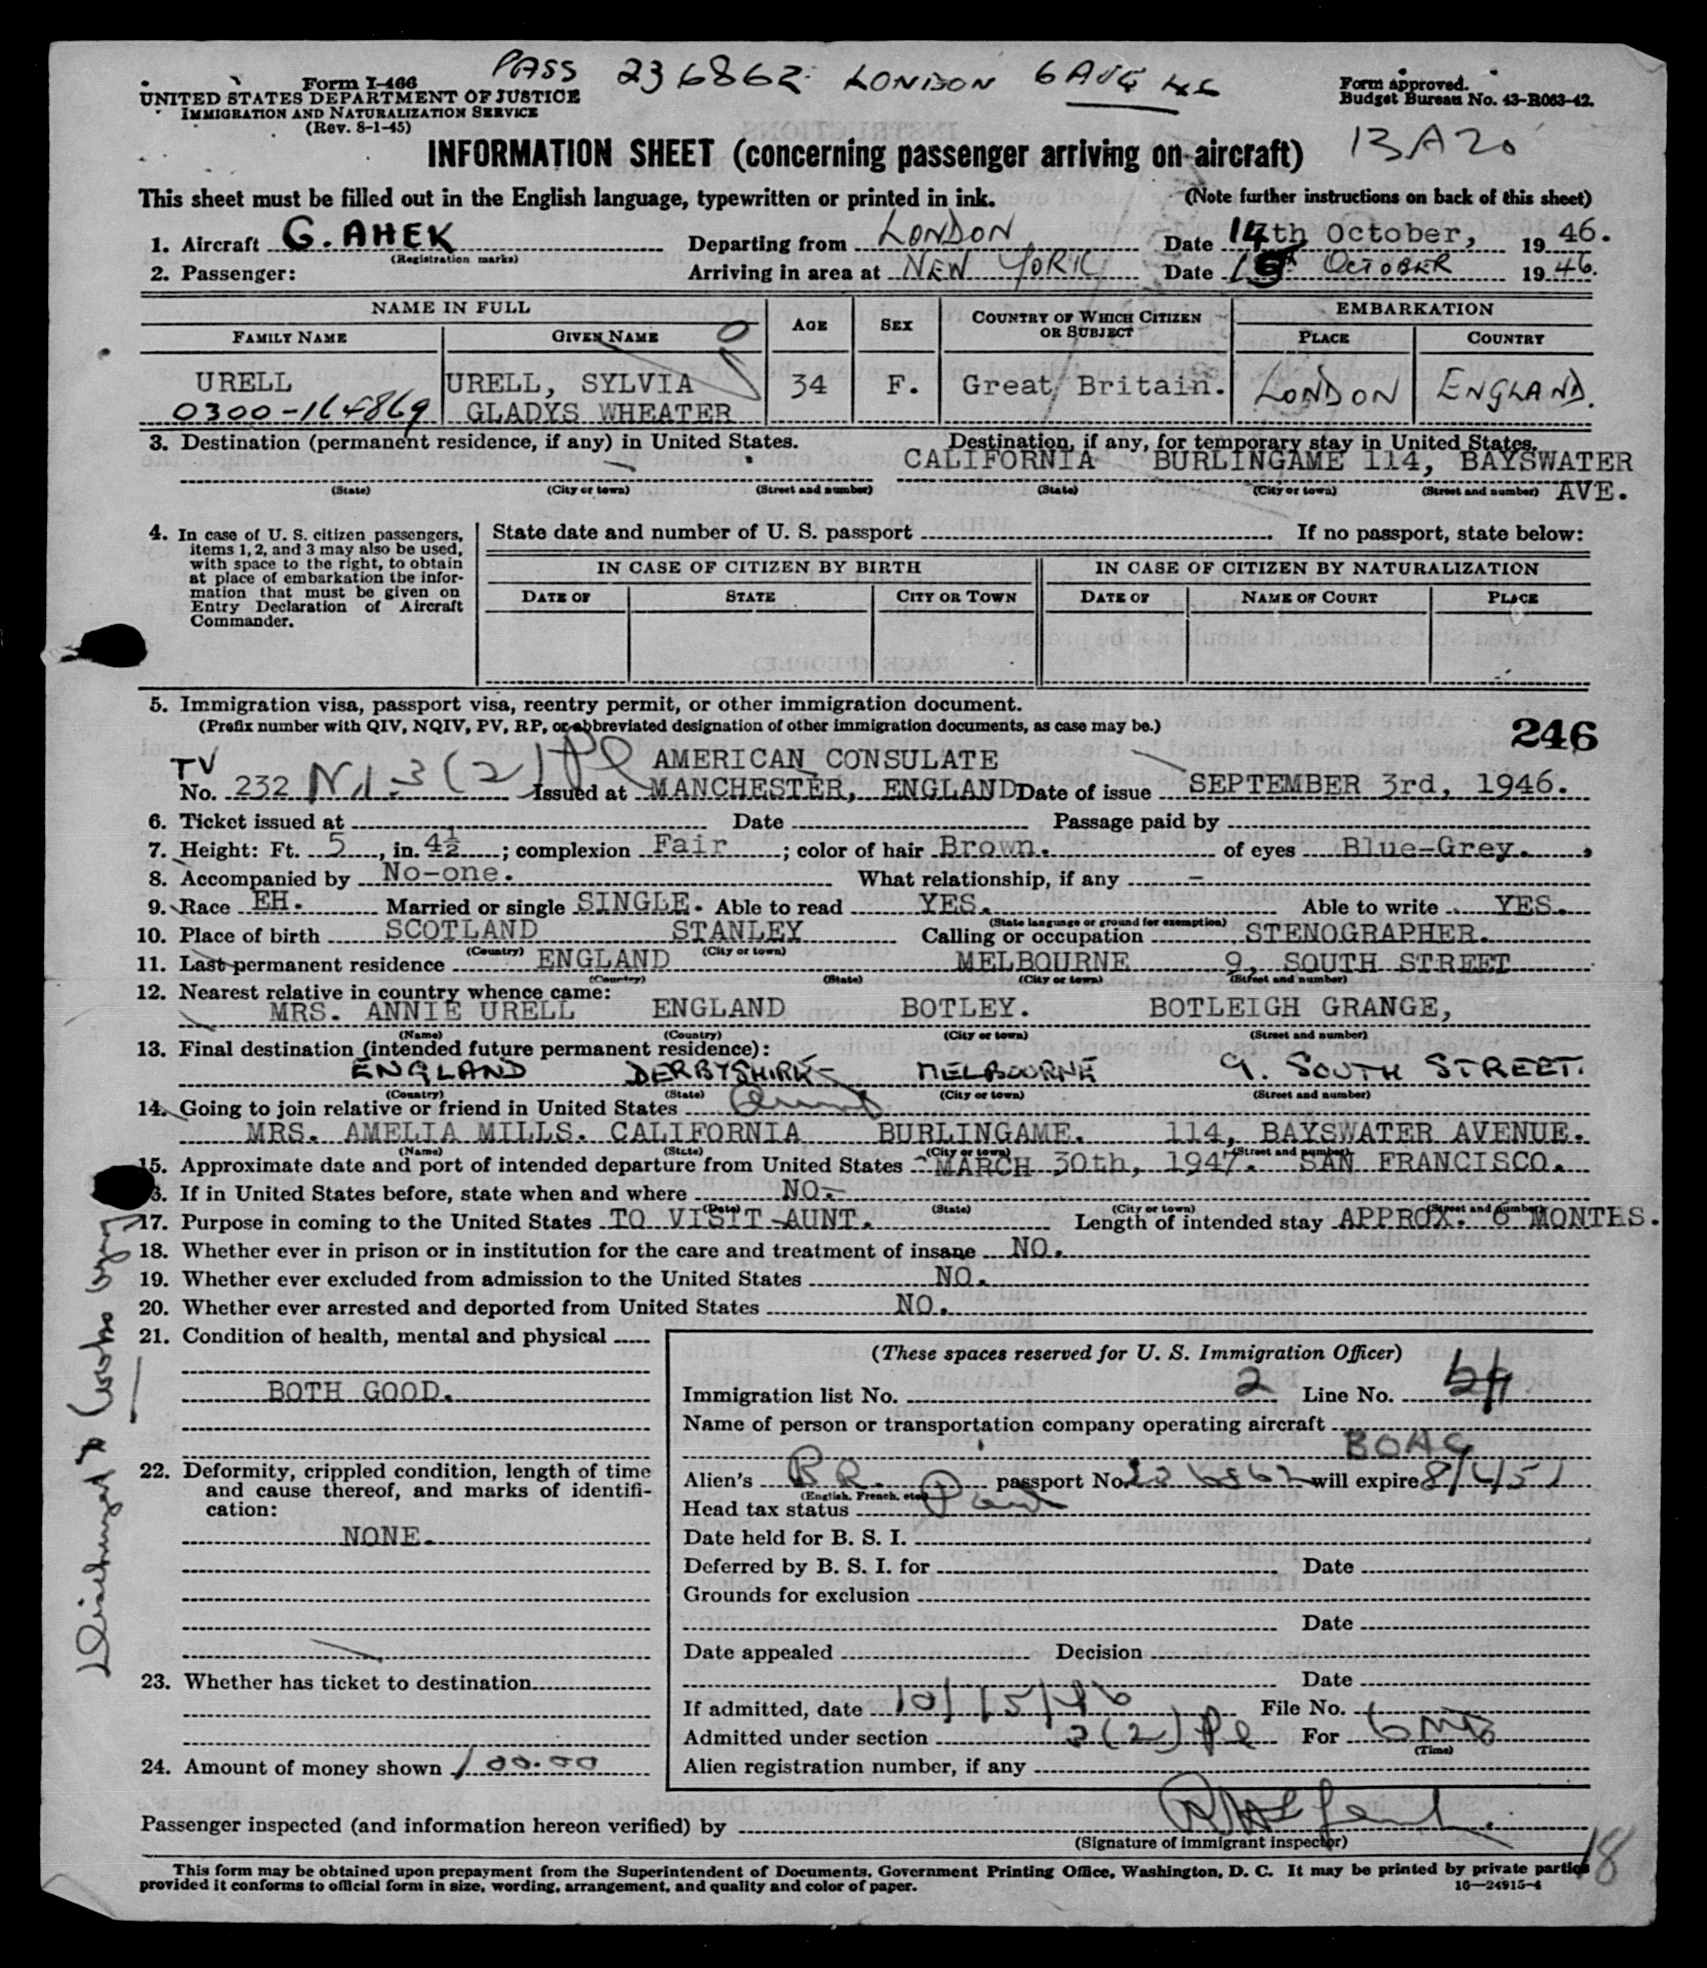 PASS 236862 LONDON 6 AUG 46
Form I-466
UNITED STATES DEPARTMENT OF JUSTICE
IMMIGRATION AND NATURALIZATION SERVICE
(Rev. 8-1-45)
Form approved.
Budget Bureau No. 43-R063-42.
13A20
INFORMATION SHEET (concerning passenger arriving on aircraft)
This sheet must be filled out in the English language, typewritten or printed in ink. (Note further instructions on back of this sheet)
1. Aircraft G. AHEK Departing from LONDON Date 14th October, 1946.
(Registration marks)
2. Passenger: Arriving in area at NEW YORK Date 15th OCTOBER 1946.
NAME IN FULL AGE SEX COUNTRY OF WHICH CITIZEN OR SUBJECT EMBARKATION
FAMILY NAME GIVEN NAME PLACE COUNTRY
URELL URELL, SYLVIA 34 F. Great Britain. LONDON ENGLAND.
0300-164869 GLADYS WHEATER
3. Destination (permanent residence, if any) in United States. Destination, if any, for temporary stay in United States.
CALIFORNIA BURLINGAME 114, BAYSWATER
(State) (City or town) (Street and number) (State) (City or town) (Street and number) AVE.
4. In case of U. S. citizen passengers, items 1, 2, and 3 may also be used, with space to the right, to obtain at place of embarkation the information that must be given on Entry Declaration of Aircraft Commander.
State date and number of U. S. passport If no passport, state below:
IN CASE OF CITIZEN BY BIRTH IN CASE OF CITIZEN BY NATURALIZATION
DATE OF STATE CITY OR TOWN DATE OF NAME OF COURT PLACE
5. Immigration visa, passport visa, reentry permit, or other immigration document.
(Prefix number with QIV, NQIV, PV, RP, or abbreviated designation of other immigration documents, as case may be.)
246
TV AMERICAN CONSULATE
No. 232 N.I. 3(2) Pl Issued at MANCHESTER, ENGLAND Date of issue SEPTEMBER 3rd, 1946.
6. Ticket issued at Date Passage paid by
7. Height: Ft. 5, in. 4½; complexion Fair; color of hair Brown. of eyes Blue-Grey.
8. Accompanied by No-one. What relationship, if any -
9. Race EH. Married or single SINGLE. Able to read YES. Able to write YES.
(State language or ground for exemption)
10. Place of birth SCOTLAND STANLEY Calling or occupation STENOGRAPHER.
(Country) (City or town)
11. Last permanent residence ENGLAND MELBOURNE 9, SOUTH STREET
(Country) (State) (City or town) (Street and number)
12. Nearest relative in country whence came:
MRS. ANNIE URELL ENGLAND BOTLEY. BOTLEIGH GRANGE,
(Name) (Country) (City or town) (Street and number)
13. Final destination (intended future permanent residence):
ENGLAND DERBYSHIRE MELBOURNE 9. SOUTH STREET.
(Country) (State) (City or town) (Street and number)
14. Going to join relative or friend in United States Aunt
MRS. AMELIA MILLS. CALIFORNIA BURLINGAME. 114, BAYSWATER AVENUE.
(Name) (State) (City or town) (Street and number)
15. Approximate date and port of intended departure from United States MARCH 30th, 1947. SAN FRANCISCO.
16. If in United States before, state when and where NO.-
(Date) (State) (City or town) (Street and number)
17. Purpose in coming to the United States TO VISIT AUNT. Length of intended stay APPROX. 6 MONTHS.
18. Whether ever in prison or in institution for the care and treatment of insane NO.
19. Whether ever excluded from admission to the United States NO.
20. Whether ever arrested and deported from United States NO.
21. Condition of health, mental and physical
BOTH GOOD.
22. Deformity, crippled condition, length of time and cause thereof, and marks of identification:
NONE.
23. Whether has ticket to destination
24. Amount of money shown 100.00
(These spaces reserved for U. S. Immigration Officer)
Immigration list No. 2 Line No.
Name of person or transportation company operating aircraft
BOAC
Alien's BR. passport No. 236862 will expire 8/6/51
(English, French, etc.)
Head tax status Paid
Date held for B. S. I.
Deferred by B. S. I. for Date
Grounds for exclusion
Date
Date appealed Decision
Date
If admitted, date 10/15/46 File No.
Admitted under section 3(2) Pl For 6 Mos
(Time)
Alien registration number, if any
Passenger inspected (and information hereon verified) by
(Signature of immigrant inspector)
18
This form may be obtained upon prepayment from the Superintendent of Documents, Government Printing Office, Washington, D. C. It may be printed by private parties
provided it conforms to official form in size, wording, arrangement, and quality and color of paper.
16—24915-4